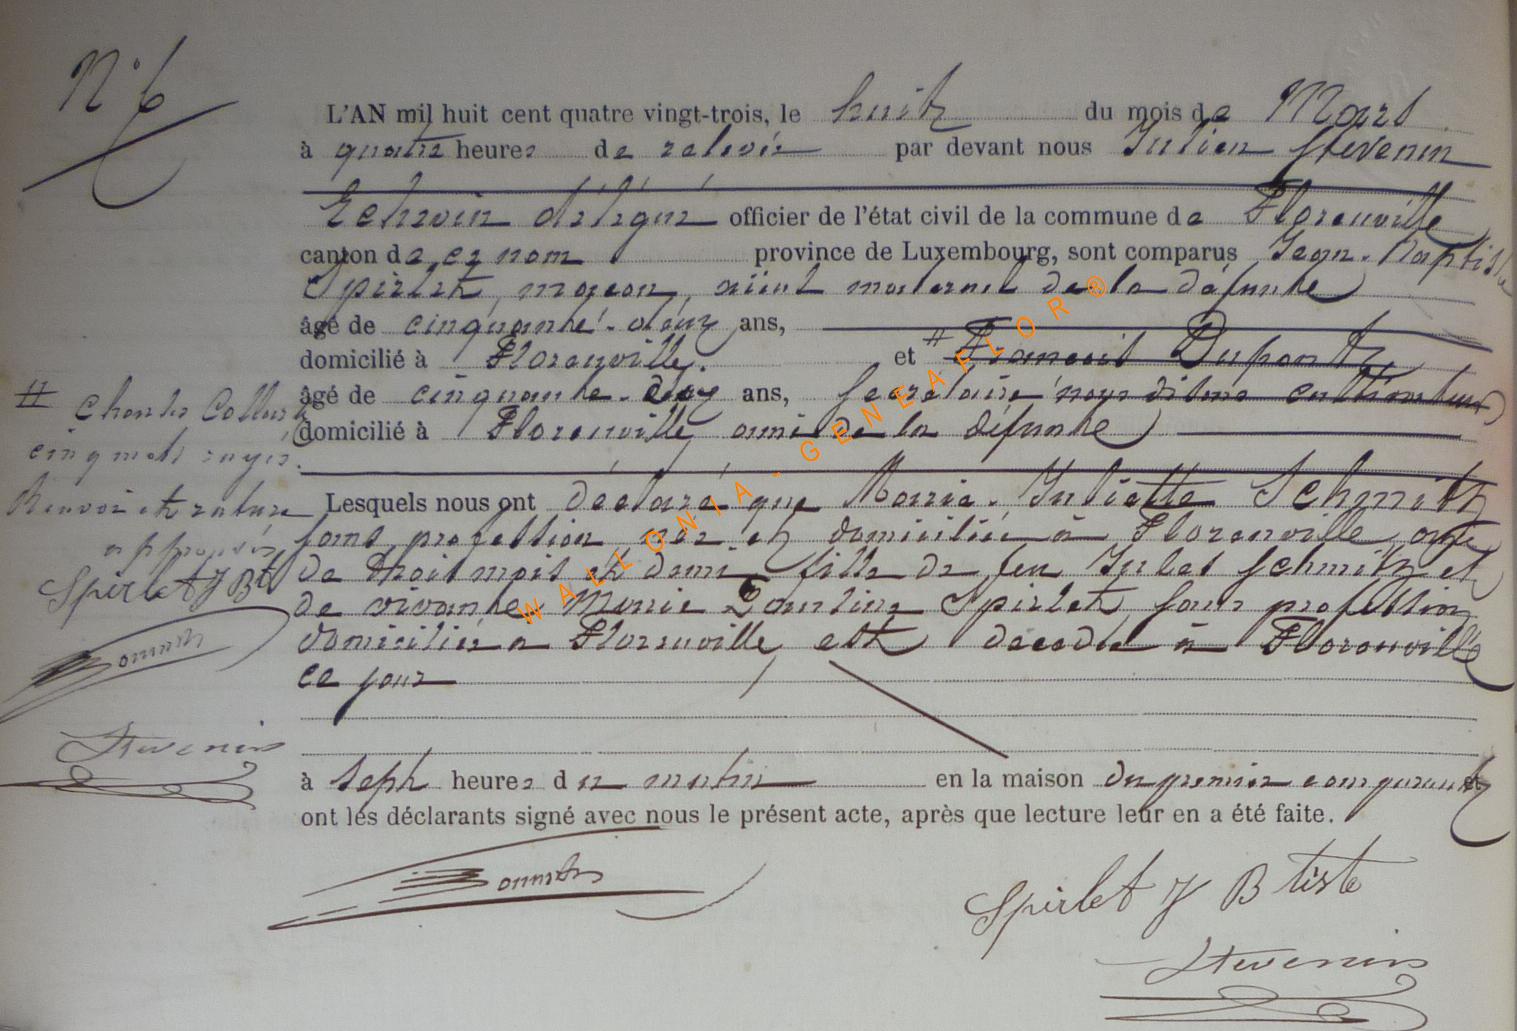 N° 6
L'AN mil huit cent quatre vingt-trois, le huit du mois de Mars
à quatre heures de relevée par devant nous Julien Stevenin
Echevin délégué officier de l'état civil de la commune de Florenville
canton de ce nom province de Luxembourg, sont comparus Jean-Baptiste
Spirlet, maçon, aïeul maternel de la défunte
âgé de cinquante-deux ans,
domicilié à Florenville. et # François Dupont
âgé de cinquante-deux ans, Secrétaire nous disons cultivateur
domicilié à Florenville ami de la défunte
# Charles
cinq mots rayés.
Renvoi et rature
approuvés
Spirlet J Bt
Stevenin
Lesquels nous ont déclaré que Marie-Juliette Schmitz
sans profession née et domiciliée à Florenville âgée
de trois mois et demi fille de feu Jules Schmitz et
de vivante Marie Pauline Spirlet sans profession
domiciliée à Florenville est décédée à Florenville
ce jour
à sept heures du matin en la maison du premier comparant
ont les déclarants signé avec nous le présent acte, après que lecture leur en a été faite.
Spirlet J Btiste
Stevenin
WALLONIA - GENEAFLOR ®